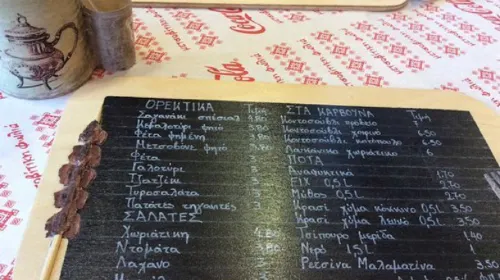 Coca-Cola
ΟΡΕΚΤΙΚΑ Τιμη
Σαγανάκι σπέσιαλ 4.80
Κεφαλοτύρι ψητό 3.80
Φέτα ψημένη 3.80
Μετσοβόνε ψητό
Φέτα 3
Γαλοτύρι 3
Τζατζίκι 3
Τυροσαλάτα 3
Πατάτες τηγανιτές 3
ΣΑΛΑΤΕΣ
Χωριάτικη 4.80
Ντομάτα 3.80
Λάχανο 3
ΣΤΑ ΚΑΡΒΟΥΝΑ Τιμη
Κοντοσούβλι πρόβειο
Κοντοσούβλι χοιρινό 6.50
Κοντοσούβλι κοτόπουλο 6.50
Λουκάνικο χωριάτικο 6
ΠΟΤΑ
Αναψυκτικά 1.70
FIX 0,5L 2.70
Μύθος 0,5L 2.70
Κρασί χύμα κόκκινο 0,5L 3.50
Κρασί χύμα λευκό 0,5L 3.50
Τσίπουρο μερίδα 1.40
Νερό 1,5L 1
Ρετσίνα Μαλαματίνα 3.50